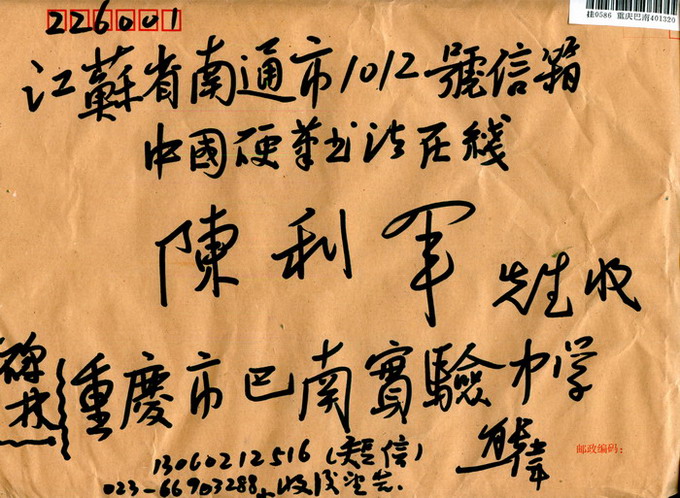 挂0586 重庆巴南401320
226001
江蘇省南通市1012號信箱
中國硬筆书法在线
陳利军 先生收
碑拓
重慶市巴南實驗中学
邮政编码：
13060212516(短信)
023-66903288 收后告